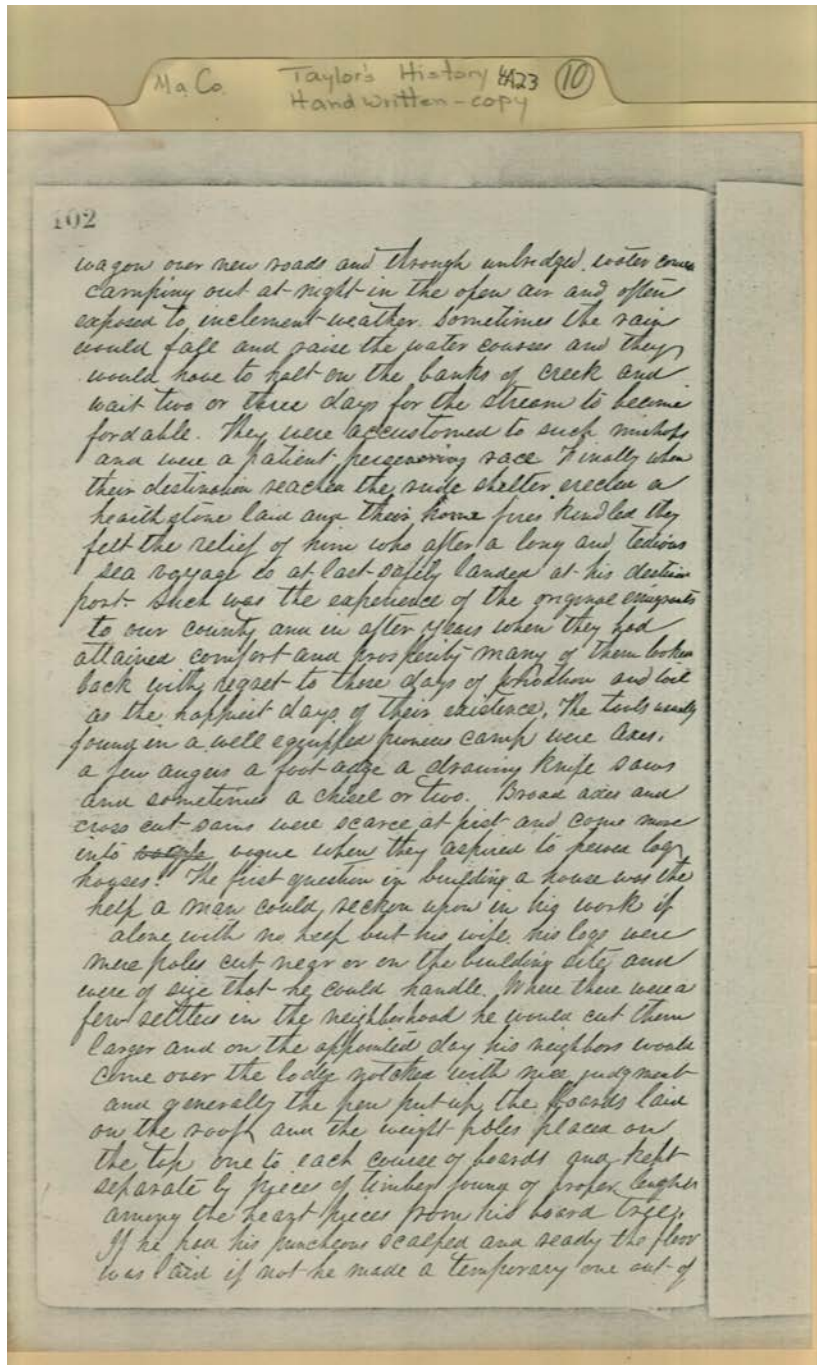 Ma Co. Taylor's History 4A23 10
Handwritten - copy
102
wagon over new roads and through unbridged water
camping out at night in the open air and often
exposed to inclement weather. Sometimes the rain
would fall and raise the water courses and they
would have to halt on the banks of creek and
wait two or three days for the stream to become
fordable. They were accustomed to such mishaps
and were a patient persevering race Finally when
their destination reached the rude shelter erected a
hearth stone laid and their home fires kindled they
felt the relief of him who after a long and tedious
sea voyage is at last safely landed at his
port. Such was the experience of the original emigrants
to our county and in after years when they had
attained comfort and prosperity many of them looked
back with regret to these days of privation and toil
as the happiest days of their existence. The tools usually
found in a well equipped pioneers camp were axes.
a few augers a foot adze a drawing knife saws
and sometimes a chisel or two. Broad axes and
cross cut saws were scarce at first and come more
into vogue when they aspired to hewed log
houses. The first question in building a house was the
help a man could reckon upon in his work if
alone with no help but his wife his logs were
mere poles cut near or on the building site and
were of size that he could handle. Where there were a
few settlers in the neighborhood he would cut them
larger and on the appointed day his neighbors would
come over the notched with nice judgment
and generally the pen put up the boards laid
on the roof and the weight poles placed on
the top one to each course of boards and kept
separate by pieces of timber found of proper lengths
among the heart pieces from his board trees.
If he had his puncheons scalped and ready the floor
was laid if not he made a temporary one out of